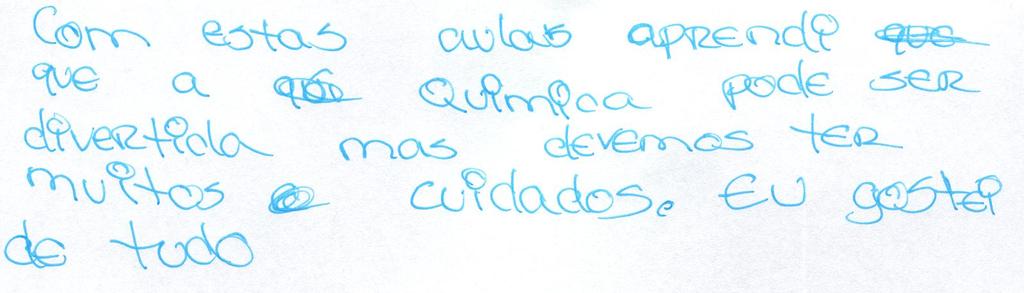 Com estas aulas aprendi
que a Quimica pode ser
divertida mas devemos ter
muitos cuidados. Eu gostei
de tudo